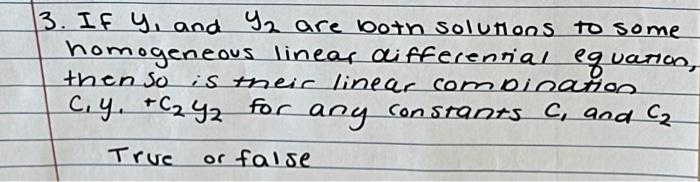 3. If y₁ and y₂ are both solutions to some
homogeneous linear differential equation,
then so is their linear combination
C₁y₁ + C₂y₂ for any constants C₁ and C₂
True or false